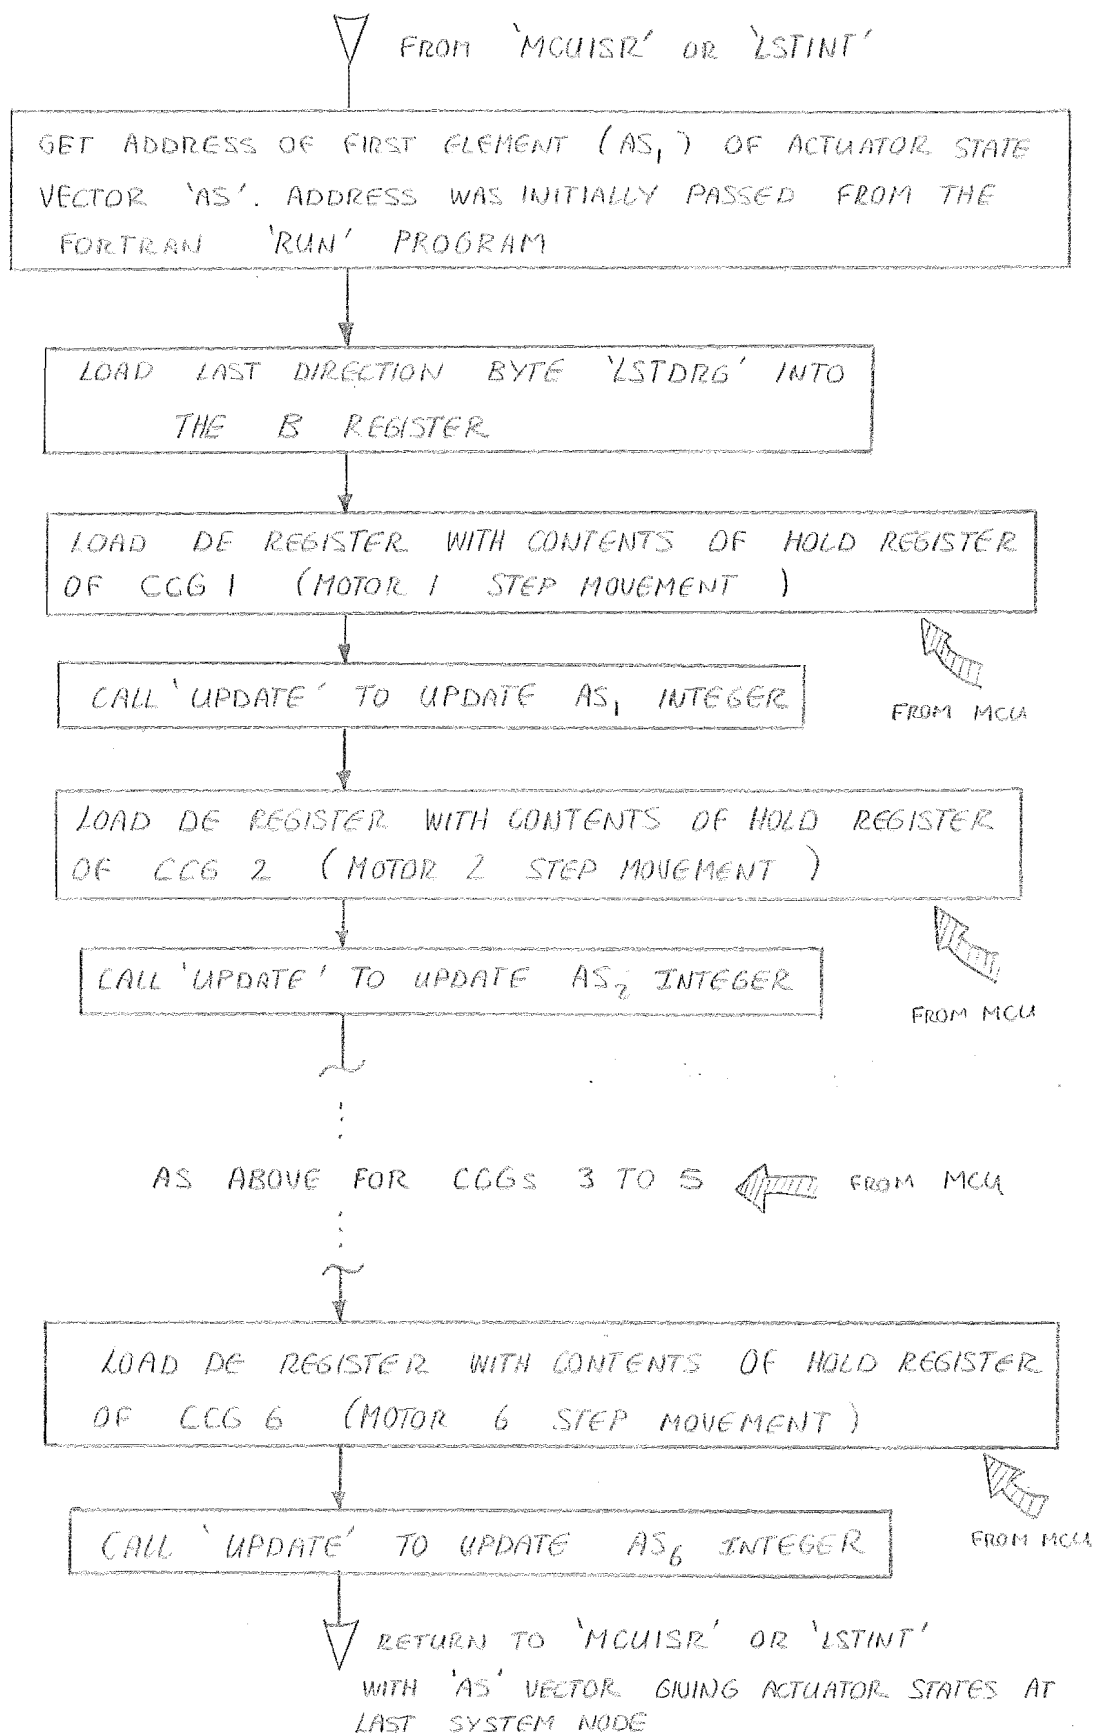 FROM 'MCUISR' OR 'LSTINT'
GET ADDRESS OF FIRST ELEMENT (AS₁) OF ACTUATOR STATE
VECTOR 'AS'. ADDRESS WAS INITIALLY PASSED FROM THE
FORTRAN 'RUN' PROGRAM
LOAD LAST DIRECTION BYTE 'LSTDRG' INTO
THE B REGISTER
LOAD DE REGISTER WITH CONTENTS OF HOLD REGISTER
OF CCG 1 (MOTOR 1 STEP MOVEMENT )
FROM MCU
CALL 'UPDATE' TO UPDATE AS₁ INTEGER
LOAD DE REGISTER WITH CONTENTS OF HOLD REGISTER
OF CCG 2 (MOTOR 2 STEP MOVEMENT )
FROM MCU
CALL 'UPDATE' TO UPDATE AS₂ INTEGER
AS ABOVE FOR CCGs 3 TO 5 FROM MCU
LOAD DE REGISTER WITH CONTENTS OF HOLD REGISTER
OF CCG 6 (MOTOR 6 STEP MOVEMENT )
FROM MCU
CALL 'UPDATE' TO UPDATE AS₆ INTEGER
RETURN TO 'MCUISR' OR 'LSTINT'
WITH 'AS' VECTOR GIVING ACTUATOR STATES AT
LAST SYSTEM NODE